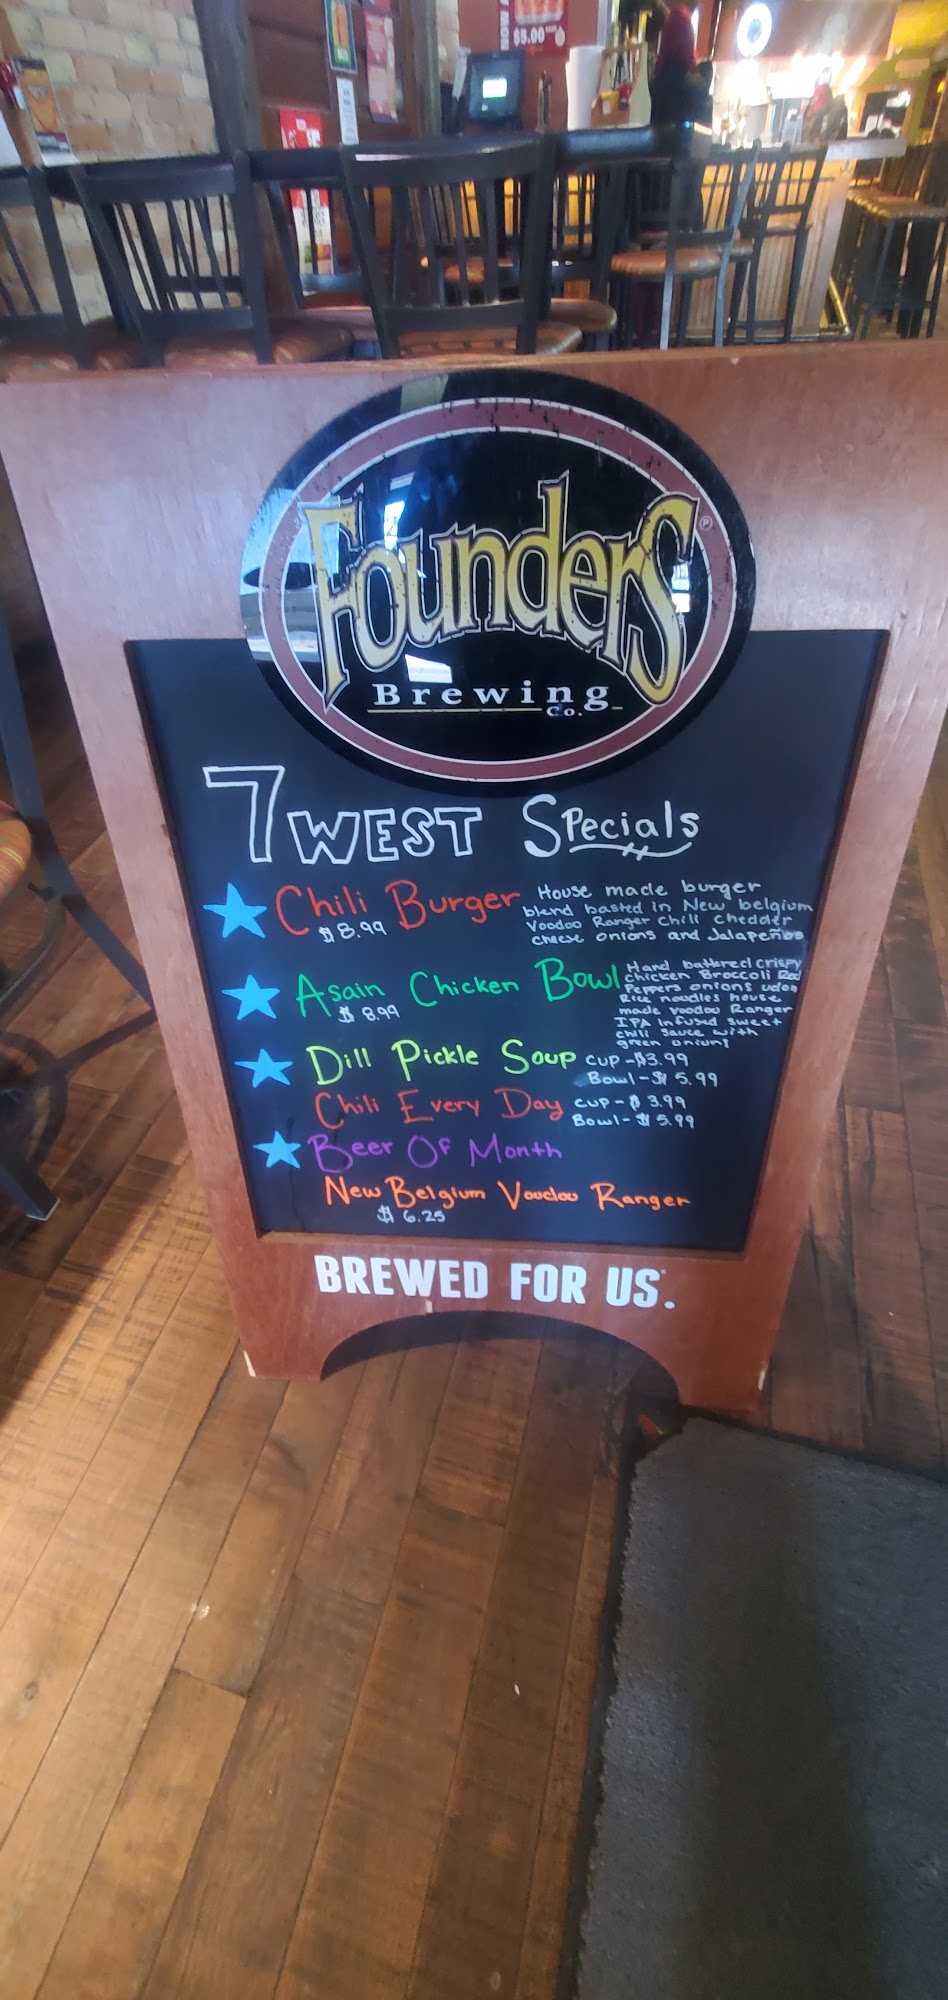 $5.00
Founders
Brewing
Co.
7 WEST Specials
Chili Burger
$8.99
House made burger
blend basted in New belgium
Voodoo Ranger Chili Chedder
cheese onions and Jalapeños
Asain Chicken Bowl
$8.99
Hand battered crispy
chicken Broccoli Red
Peppers onions udon
Rice noodles house
made voodoo Ranger
IPA infused sweet
chili sauce with
green onions
Dill Pickle Soup cup -$3.99
Bowl -$5.99
Chili Every Day cup -$3.99
Bowl -$5.99
Beer Of Month
New Belgium Voodoo Ranger
$6.25
BREWED FOR US.